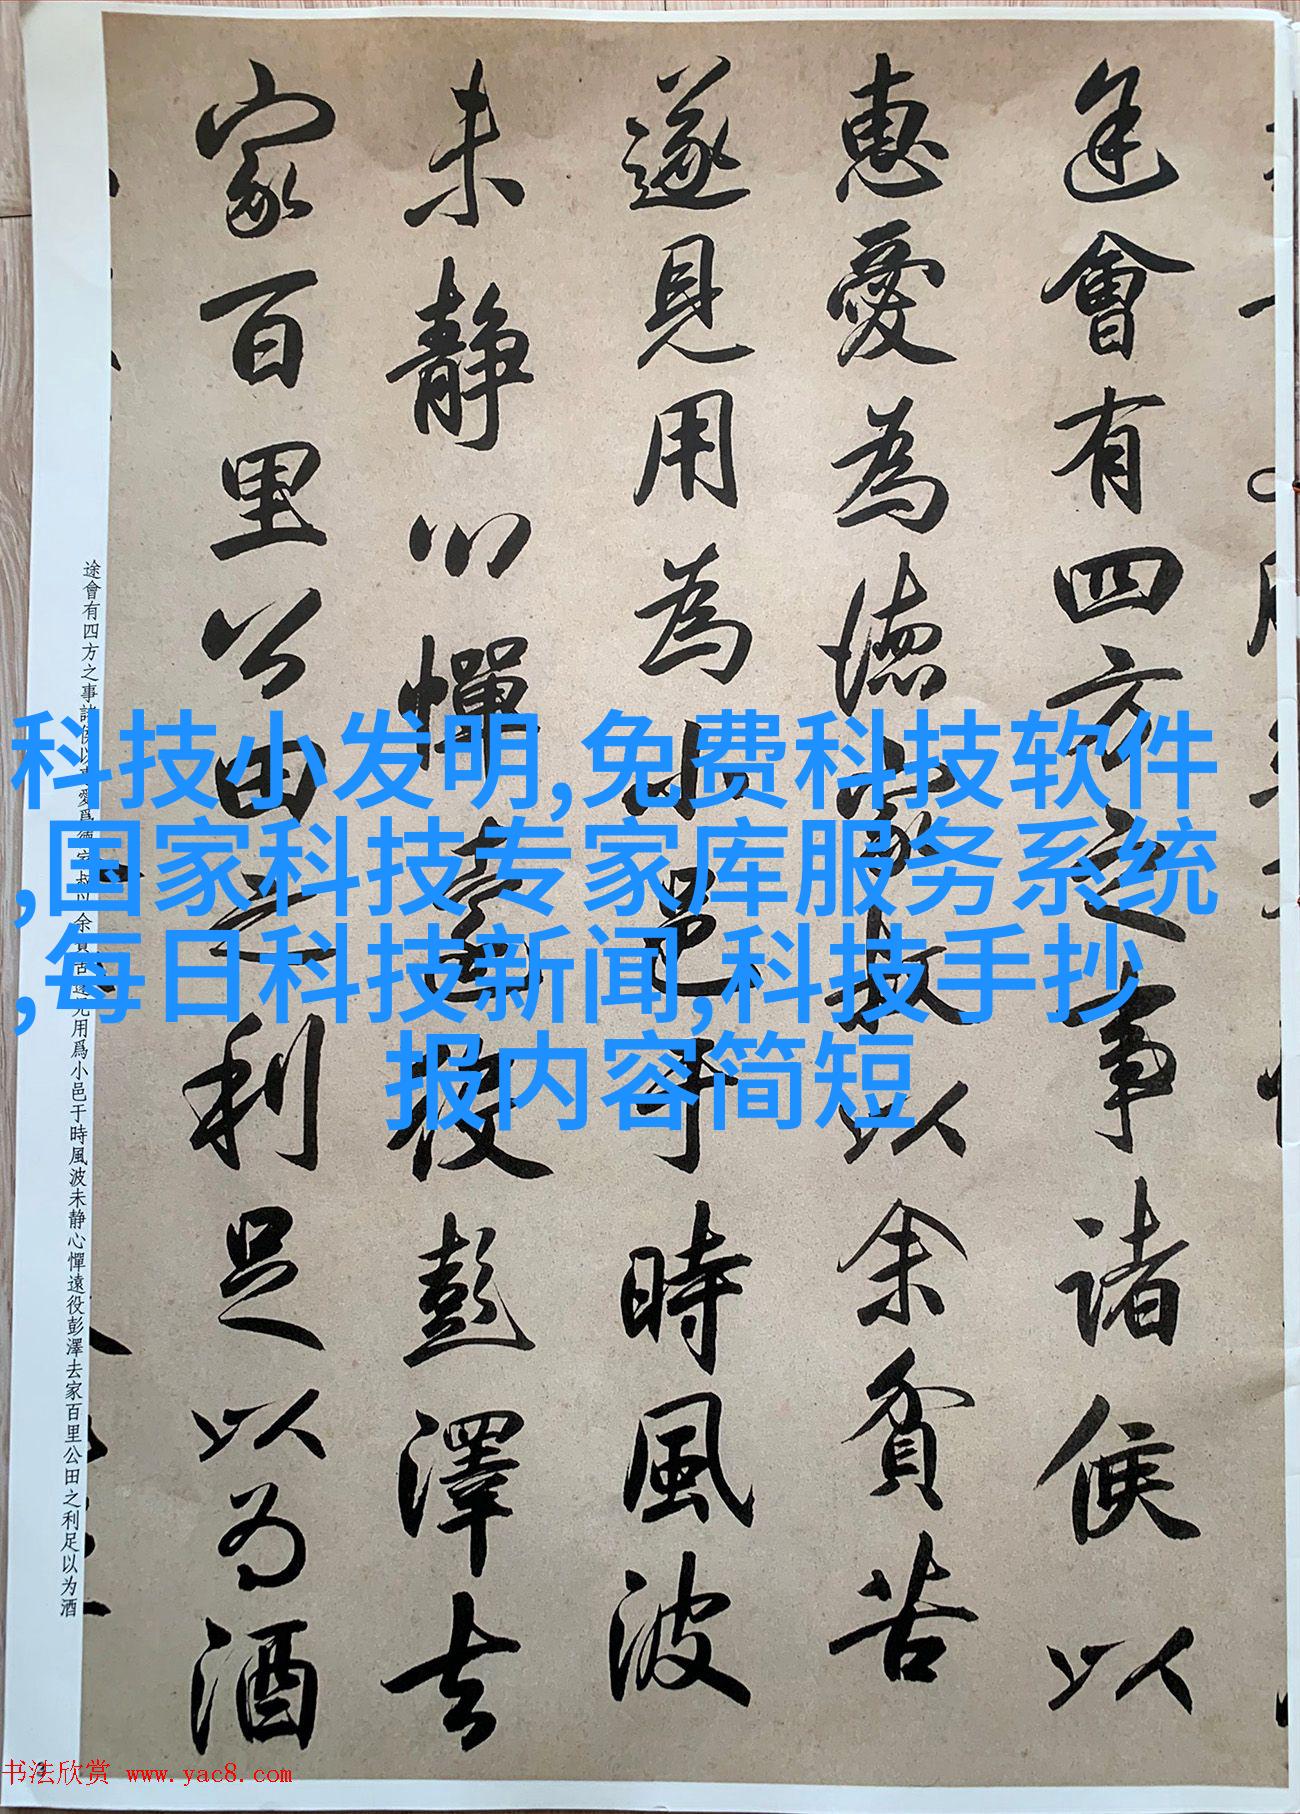 途會有四方之事諸侯以
惠愛為德家叔以余貧苦
遂見用為小邑于時風波
未静心憚遠役彭澤去
家百里公田之利足以為酒
途會有四方之事諸侯以惠愛爲德家叔以余貧苦遂見用爲小邑于時風波未静心憚遠役彭澤去家百里公田之利足以为酒
科技小发明,免费科技软件
,国家科技专家库服务系统
,每日科技新闻,科技手抄
报内容简短
书法欣赏 www.yac8.com